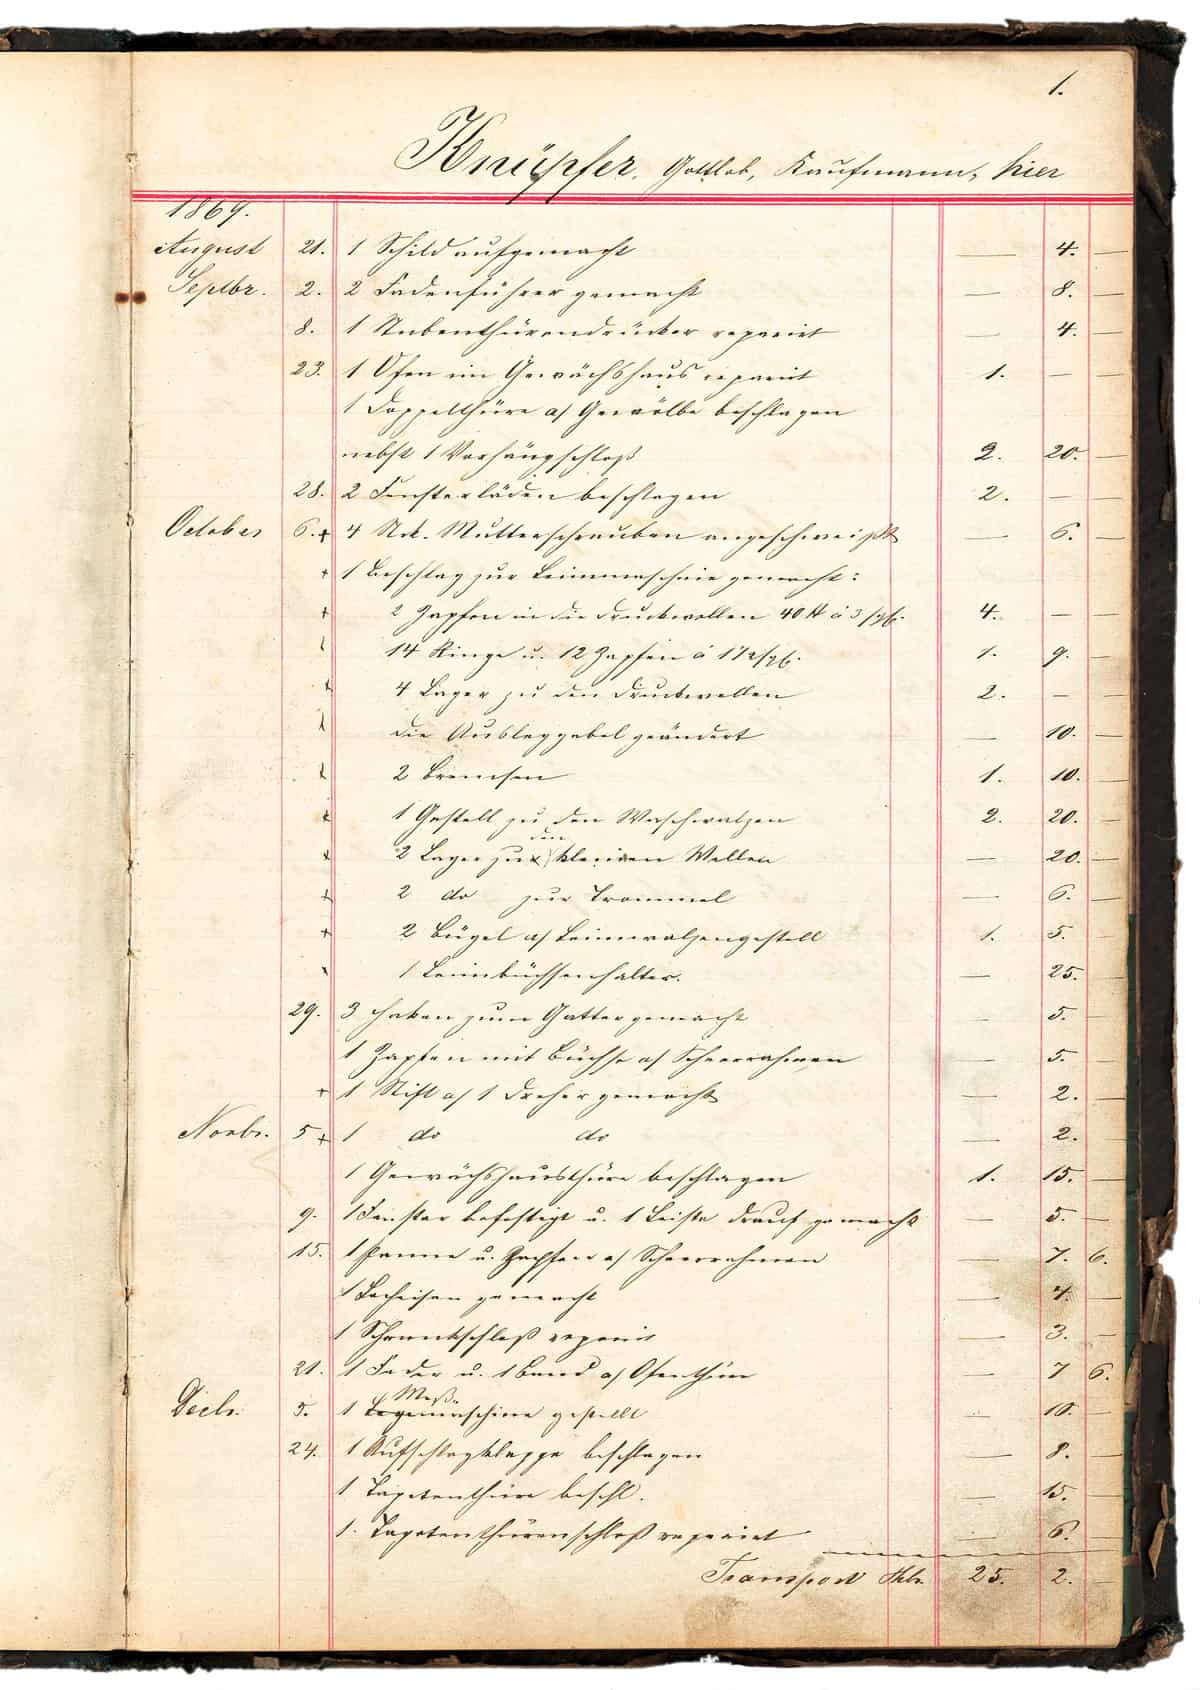 1.
Knüpfer, Gottlob, Kaufmann, hier
1869.
August 21. 1 Schild aufgemacht — 4. —
Septbr. 2. 2 Fadenführer gemacht — 8. —
8. 1 Stubenthürendrücker reparirt — 4. —
23. 1 Ofen im Gewächshaus reparirt 1. — —
1 Doppelthüre a/ Gewölbe beschlagen
nebst 1 Vorhängschloß 2. 20. —
28. 2 Fensterläden beschlagen 2. — —
October 6. + 4 Stck. Mutterschrauben angeschweißt — 6. —
+ 1 Beschlag zur Leimmaschine gemacht:
+ 2 Zapfen in die Druckwellen 40 ℔ á 3 sgl. 4. — —
14 Ringe u. 12 Zapfen á 1 1/2 sgl. 1. 9. —
4 Lager zu den Druckwellen 2. — —
die Ausleggabel geändert — 10. —
2 Bremsen 1. 10. —
1 Gestell zu den Waschwalzen 2. 20. —
den
2 Lager zu kleinen Wellen — 20. —
+ 2 do zur Trommel — 6. —
+ 2 Bügel a/ Leimwalzengestell 1. 5. —
1 Leimbüchsenhalter. — 25. —
29. 3 Haken zum Gatter gemacht — 5. —
1 Zapfen mit Büchse a/ Scheerrahmen — 5. —
+ 1 Stift a/ 1 Dreher gemacht — 2. —
Novbr. 5 + 1 do do — 2. —
1 Gewächshausthüre beschlagen 1. 15. —
9. 1 Fenster befestigt u. 1 Leiste drauf gemacht — 5. —
15. 1 Pfanne u. Zapfen a/ Scheerrahmen — 7. 6.
1 Locheisen gemacht — 4. —
1 Schrankschloß reparirt — 3. —
21. 1 Feder u. 1 Band a/ Ofenthür — 7 6.
Meß-
Decbr. 5. 1 maschine gestellt — 10. —
24. 1 Aufschlagklappe beschlagen — 8. —
1 Tapetenthüre beschl. — 15. —
1. Tapetenthürenschloß reparirt — 6. —
Transport Thlr. 25. 2. —